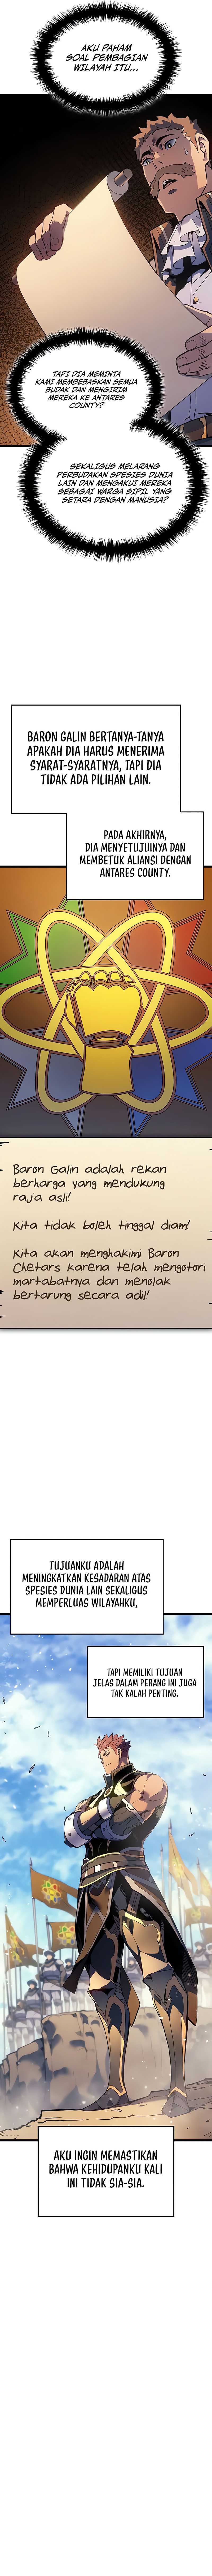 AKU PAHAM
SOAL PEMBAGIAN
WILAYAH ITU...
TAPI DIA MEMINTA
KAMI MEMBEBASKAN SEMUA
BUDAK DAN MENGIRIM
MEREKA KE ANTARES
COUNTY?
SEKALIGUS MELARANG
PERBUDAKAN SPESIES DUNIA
LAIN DAN MENGAKUI MEREKA
SEBAGAI WARGA SIPIL YANG
SETARA DENGAN MANUSIA?
BARON GALIN BERTANYA-TANYA
APAKAH DIA HARUS MENERIMA
SYARAT-SYARATNYA, TAPI DIA
TIDAK ADA PILIHAN LAIN.
PADA AKHIRNYA,
DIA MENYETUJUINYA DAN
MEMBETUK ALIANSI DENGAN
ANTARES COUNTY.
Baron Galin adalah rekan
berharga yang mendukung
raja asli!
Kita tidak boleh tinggal diam!
Kita akan menghakimi Baron
Chetars karena telah mengotori
martabatnya dan menolak
bertarung secara adil!
TUJUANKU ADALAH
MENINGKATKAN KESADARAN ATAS
SPESIES DUNIA LAIN SEKALIGUS
MEMPERLUAS WILAYAHKU,
TAPI MEMILIKI TUJUAN
JELAS DALAM PERANG INI JUGA
TAK KALAH PENTING.
AKU INGIN MEMASTIKAN
BAHWA KEHIDUPANKU KALI
INI TIDAK SIA-SIA.